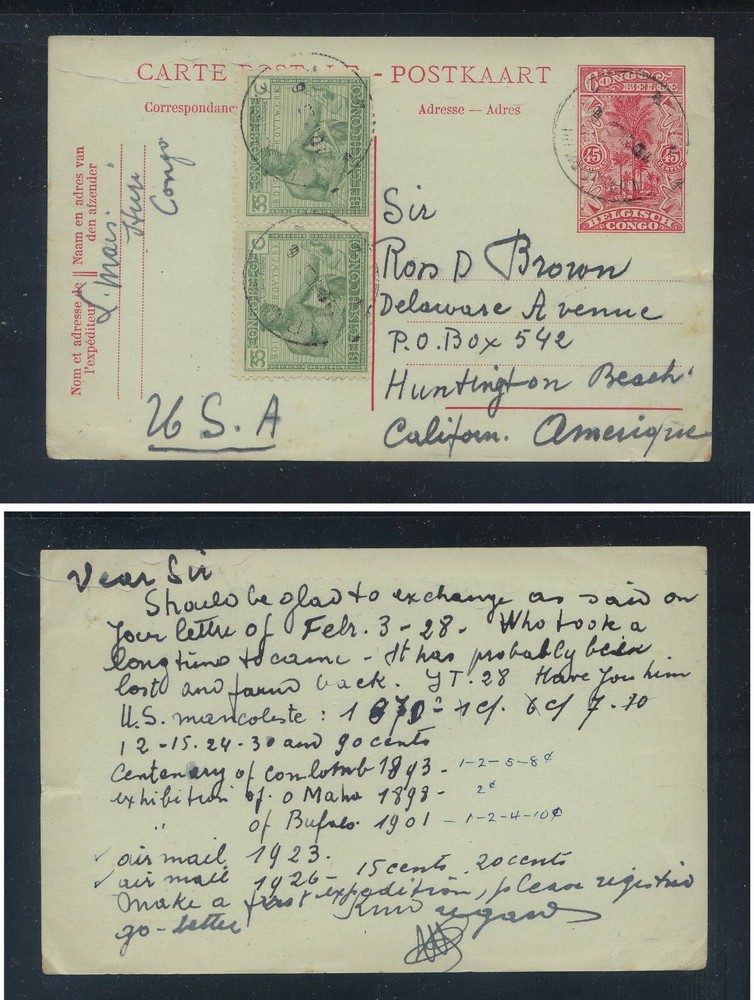 CARTE POSTALE - POSTKAART
Correspondanc
Adresse — Adres
CONGO BELGE
45
45
BELGISCH CONGO
CONGO BELGE
BELGISCH CONGO
35
CONGO BELGE
BELGISCH CONGO
35
Nom et adresse de || Naam en adres van
l'expéditeur den afzender
L. Mais
Congo
Sir
Ross D Brown
Delaware Avenue
P.O. Box 542
Huntington Beach
Californ. Amerique
U S. A
Dear Sir
Should be glad to exchange as said on
Your lettre of Febr. 3 - 28 - Who took a
long time to came - It has probably been
lost and found back. YT. 28 Have You him
U.S. mancoliste : 1 7. 10
12 - 15. 24 - 30 and 90 cents
Centenary of Combomb 1893 - 1-2-5-8¢
exhibition of. O Maha 1898 - 2¢
" of Bufalo 1901 - 1-2-4-10¢
✓ air mail 1923.
✓ air mail 1926 - 15 cents . 20 cents
Make a first expedition, please registred
go - letter Kind regards